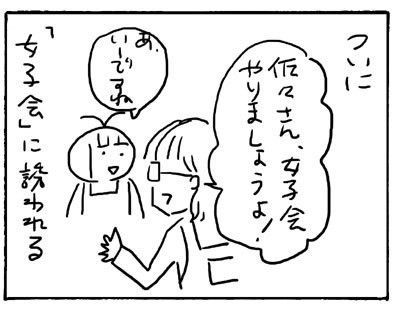 ついに
佐々さん、女子会
やりましょうよ!
あ、
いーですね
「女子会」に誘われる